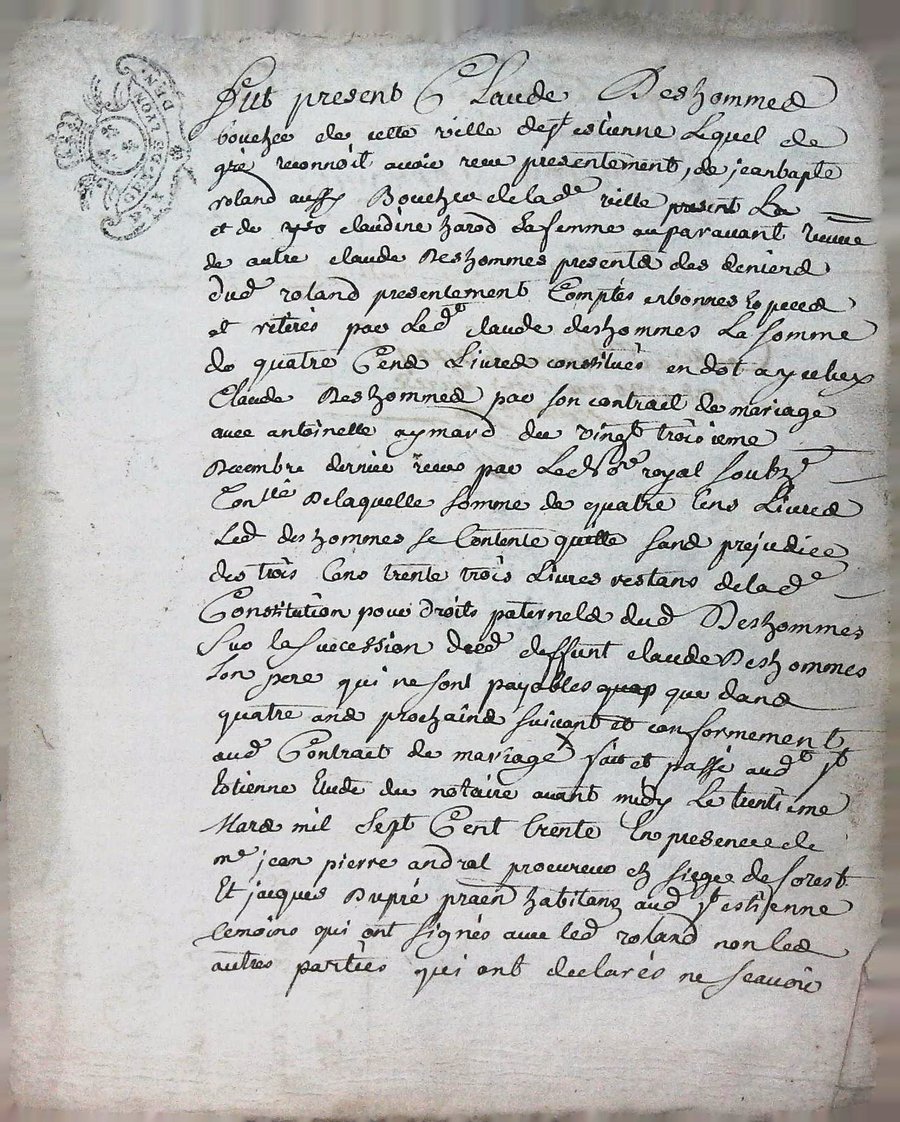 Fut present Claude Deshommes
boucher de cette ville de st estienne Lequel de
gré reconnoit avoir receu presentement, de jean bapte
roland aussy Boucher de lad.e ville present La
et de claudine harod sa femme auparavant veuve
de autre claude Deshommes presents des deniers
dud roland presentement Comptés en bonnes Especes
et retirés par Led.t claude deshommes La Somme
de quatre Cens Livres constitués en dot
Claude Deshommes par son contrait de mariage
avec antoinette aymard du vingt troisieme
Decembre dernier receu par Le no.re royal Soubz.é
De laquelle somme de quatre Cens Livres
Led deshommes se Contente quitte sans prejudice
des trois Cens trente trois Livres restans de lad.e
Constitution pour droits paternels dud Deshommes
Sur la succession deffunt claude Deshommes
son pere qui ne sont payables que dans
quatre ans prochains suivant et conformement
aud Contract de mariage fait et passé aud.t s.t
Estienne Etude du notaire avant midy Le trentieme
Mars mil sept Cent trente En presence de
m.e jean pierre andral procureur ez siege de forest
Et jacques Dupré praen habitans aud s.t estienne
temoins qui ont signés avec led roland non les
autres parties qui ont declarés ne scavoir